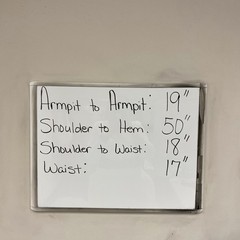 Armpit to Armpit: 19"
Shoulder to Hem: 50"
Shoulder to Waist: 18"
Waist: 17"